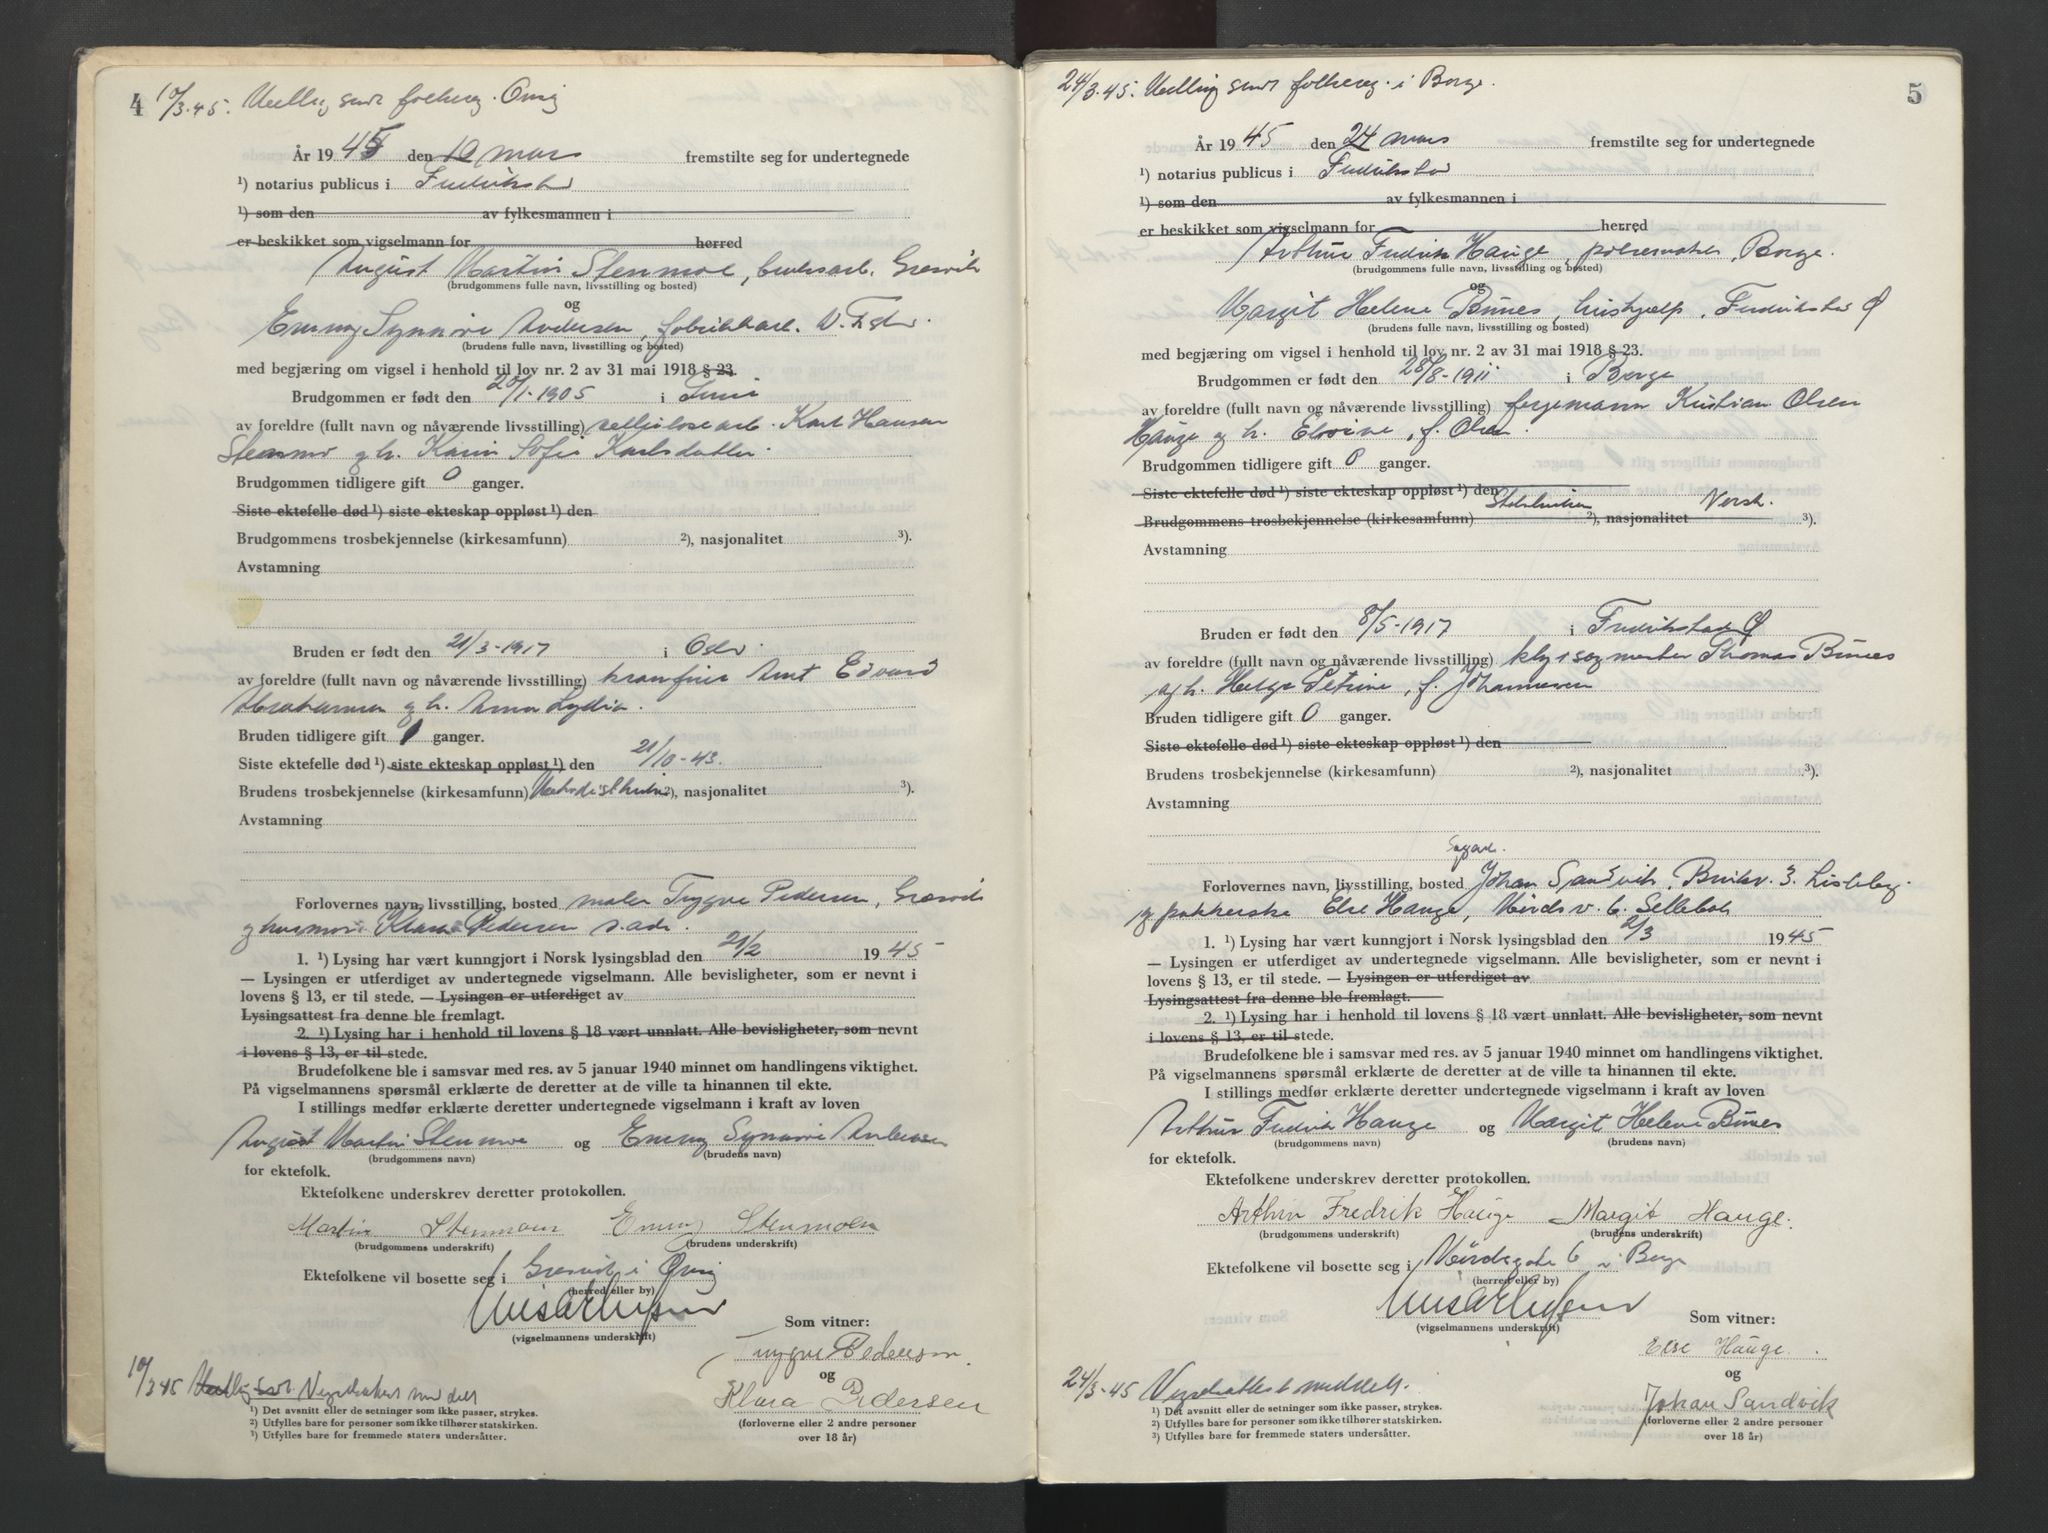 4
10/3.45. sendt folkereg. Onsø
År 1945 den 10 mars fremstilte seg for undertegnede
¹) notarius publicus i Fredrikstad
¹) som den av fylkesmannen i
er beskikket som vigselmann for herred
August Martin Stenmoe, Gresvik
(brudgommens fulle navn, livsstilling og bosted)
og
Emmy Synnøve Andersen, fabrikkarb. V. Fr.stad.
(brudens fulle navn, livsstilling og bosted)
med begjæring om vigsel i henhold til lov nr. 2 av 31 mai 1918 § 23.
Brudgommen er født den 20/1-1905 i
av foreldre (fullt navn og nåværende livsstilling) cellulosearb. Karl Hansen
Stenmo og h. Karin Sofie Karlsdatter.
Brudgommen tidligere gift 0 ganger.
Siste ektefelle død ¹) siste ekteskap oppløst ¹) den
Brudgommens trosbekjennelse (kirkesamfunn) ²), nasjonalitet ³).
Avstamning
Bruden er født den 21/3-1917 i Oslo.
av foreldre (fullt navn og nåværende livsstilling) kranfører Arnt Edvard
Abrahamsen og h. Anna Lydia.
Bruden tidligere gift 1 ganger.
Siste ektefelle død ¹) siste ekteskap oppløst ¹) den 21/10-43.
Brudens trosbekjennelse (kirkesamfunn) ²), nasjonalitet ³).
Avstamning
Forlovernes navn, livsstilling, bosted maler Trygve Pedersen, Gresvik
og husmor Klara Pedersen s.ads.
1. ¹) Lysing har vært kunngjort i Norsk lysingsblad den 21/2 1945
— Lysingen er utferdiget av undertegnede vigselmann. Alle bevisligheter, som er nevnt i
lovens § 13, er til stede. — Lysingen er utferdiget av
Lysingsattest fra denne ble fremlagt.
2. ¹) Lysing har i henhold til lovens § 18 vært unnlatt. Alle bevisligheter, som nevnt
i lovens § 13, er til stede.
Brudefolkene ble i samsvar med res. av 5 januar 1940 minnet om handlingens viktighet.
På vigselmannens spørsmål erklærte de deretter at de ville ta hinannen til ekte.
I stillings medfør erklærte deretter undertegnede vigselmann i kraft av loven
August Martin Stenmoe og Emmy Synnøve Andersen
(brudgommens navn) (brudens navn)
for ektefolk.
Ektefolkene underskrev deretter protokollen.
Martin Stenmoen Emmy Stenmoen
(brudgommens underskrift) (brudens underskrift)
Ektefolkene vil bosette seg i Gresvik i Onsø
(herred eller by)
(vigselmannens underskrift)
Som vitner:
Trygve Pedersen.
og
Klara Pedersen
(forloverne eller 2 andre personer
over 18 år)
10/3 45 Vigselsattest meddelt
¹) Det avsnitt eller de setninger som ikke passer, strykes.
²) Utfylles bare for personer som ikke tilhører statskirken.
³) Utfylles bare for fremmede staters undersåtter.
5
24/3.45. sendt folkereg. i Borge.
År 1945 den 24 mars fremstilte seg for undertegnede
¹) notarius publicus i Fredrikstad
¹) som den av fylkesmannen i
er beskikket som vigselmann for herred
Arthur Fredrik Hauge, Borge.
(brudgommens fulle navn, livsstilling og bosted)
og
Margit Helene Bünes, hushjelp, Fredrikstad Ø
(brudens fulle navn, livsstilling og bosted)
med begjæring om vigsel i henhold til lov nr. 2 av 31 mai 1918 § 23.
Brudgommen er født den 28/8-1911 i Borge
av foreldre (fullt navn og nåværende livsstilling) fergemann Kristian Olsen
Hauge og h. Elvine, f. Olsen.
Brudgommen tidligere gift 0 ganger.
Siste ektefelle død ¹) siste ekteskap oppløst ¹) den
Brudgommens trosbekjennelse (kirkesamfunn) Statskirken ²), nasjonalitet Norsk. ³).
Avstamning
Bruden er født den 8/5-1917 i Fredrikstad Ø
av foreldre (fullt navn og nåværende livsstilling) Thomas Bünes
og h. Helga Petrine, f. Johannesen
Bruden tidligere gift 0 ganger.
Siste ektefelle død ¹) siste ekteskap oppløst ¹) den
Brudens trosbekjennelse (kirkesamfunn) ²), nasjonalitet ³).
Avstamning
Forlovernes navn, livsstilling, bosted Johan Sandvik, 3. Lisleby.
og pakkerske Else Hauge, 6. Sellebak
1. ¹) Lysing har vært kunngjort i Norsk lysingsblad den 2/3 1945
— Lysingen er utferdiget av undertegnede vigselmann. Alle bevisligheter, som er nevnt i
lovens § 13, er til stede. — Lysingen er utferdiget av
Lysingsattest fra denne ble fremlagt.
2. ¹) Lysing har i henhold til lovens § 18 vært unnlatt. Alle bevisligheter, som nevnt
i lovens § 13, er til stede.
Brudefolkene ble i samsvar med res. av 5 januar 1940 minnet om handlingens viktighet.
På vigselmannens spørsmål erklærte de deretter at de ville ta hinannen til ekte.
I stillings medfør erklærte deretter undertegnede vigselmann i kraft av loven
Arthur Fredrik Hauge og Margit Helene Bünes
(brudgommens navn) (brudens navn)
for ektefolk.
Ektefolkene underskrev deretter protokollen.
Arthur Fredrik Hauge Margit Hauge.
(brudgommens underskrift) (brudens underskrift)
Ektefolkene vil bosette seg i 6 i Borge
(herred eller by)
(vigselmannens underskrift)
Som vitner:
Else Hauge.
og
Johan Sandvik
(forloverne eller 2 andre personer
over 18 år)
24/3-45 Vigselsattest meddelt.
¹) Det avsnitt eller de setninger som ikke passer, strykes.
²) Utfylles bare for personer som ikke tilhører statskirken.
³) Utfylles bare for fremmede staters undersåtter.